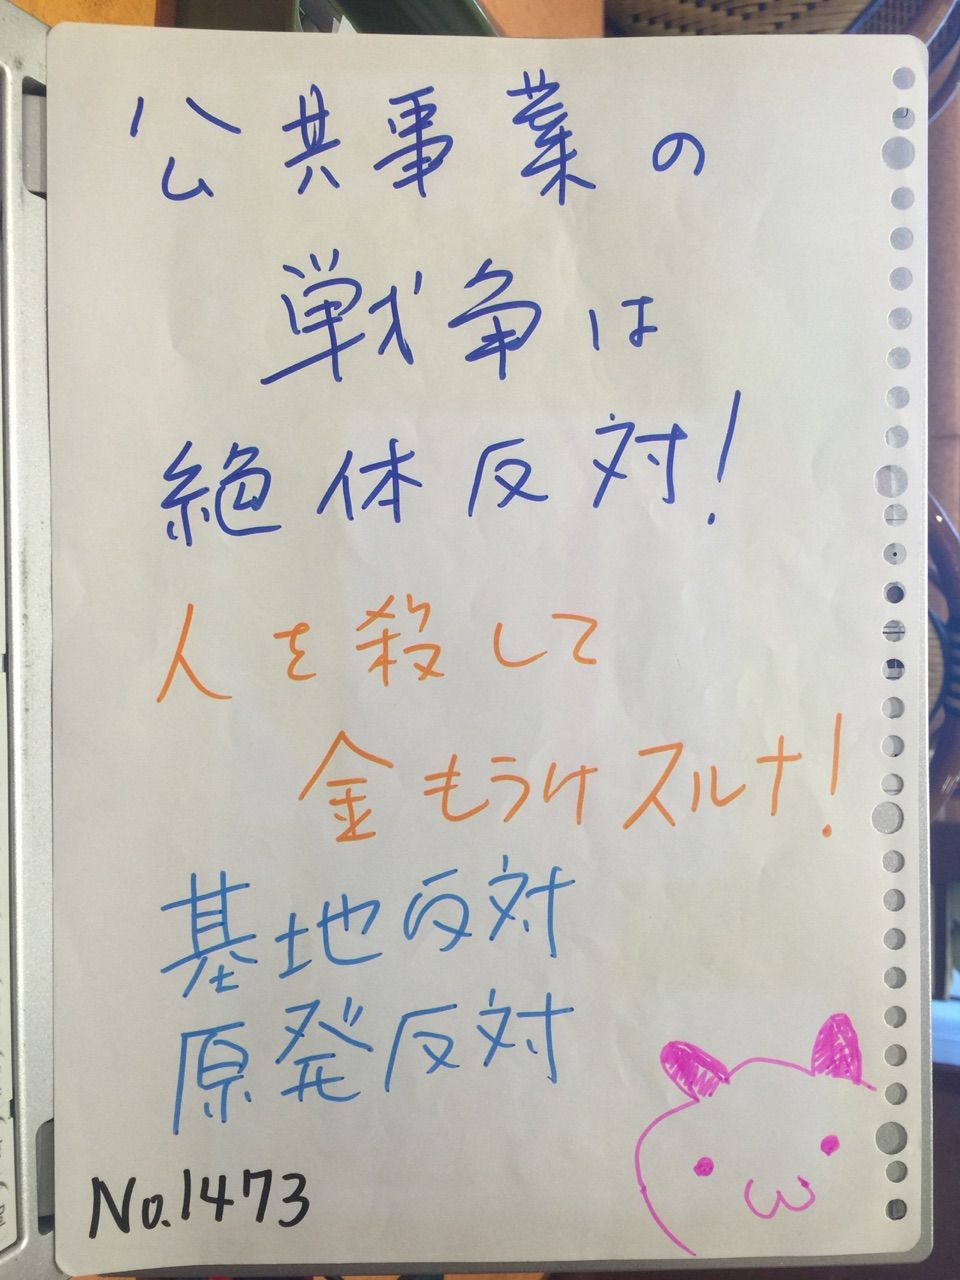 公共事業の
戦争は
絶体反対!
人を殺して
金もうけスルナ!
基地反対
原発反対
No.1473